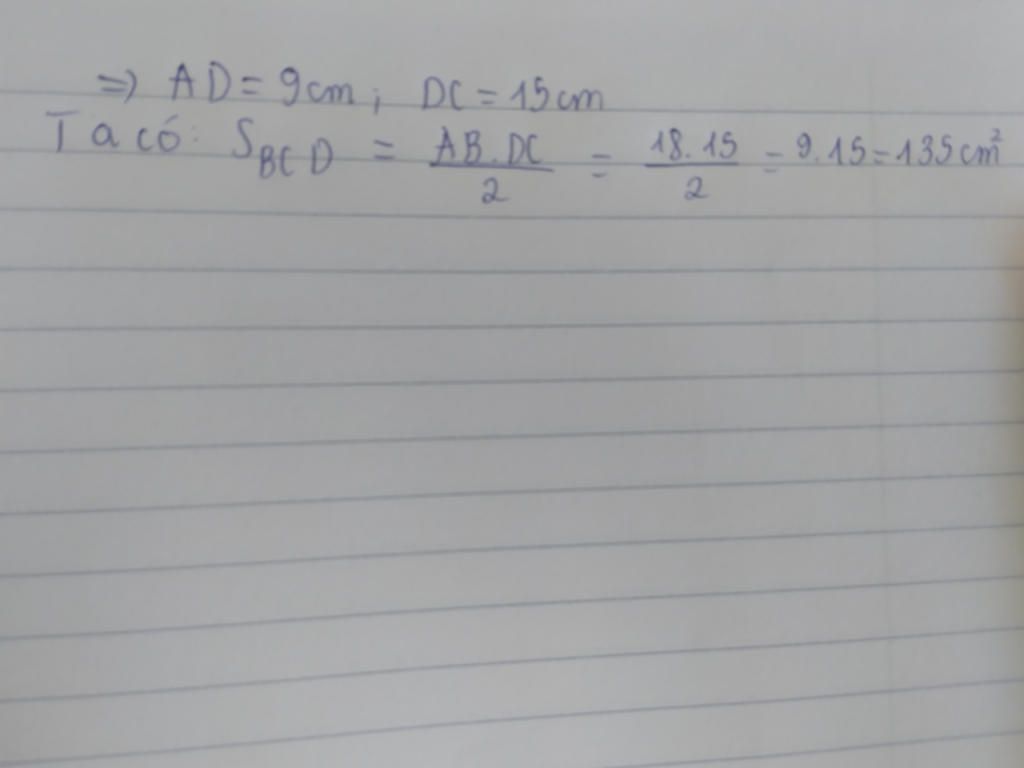 => AD = 9cm; DC = 15cm
Ta có: S_BCD = AB.DC/2 = 18.15/2 = 9.15 = 135cm²